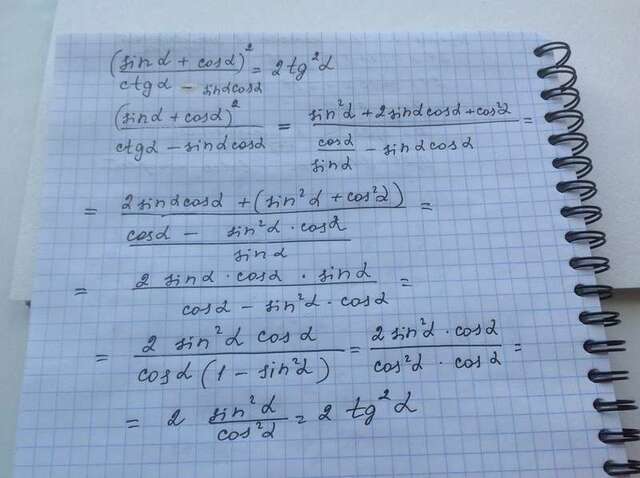 (sinα + cosα)² / ctgα - sinαcosα = 2tg²α
(sinα + cosα)² / ctgα - sinαcosα = sin²α + 2sinαcosα + cos²α / cosα/sinα - sinαcosα =
= 2sinαcosα + (sin²α + cos²α) / cosα - sin²α · cosα / sinα =
= 2 sinα · cosα · sinα / cosα - sin²α · cosα =
= 2 sin²α cosα / cosα (1 - sin²α) = 2sin²α · cosα / cos²α · cosα =
= 2 sin²α / cos²α = 2 tg²α